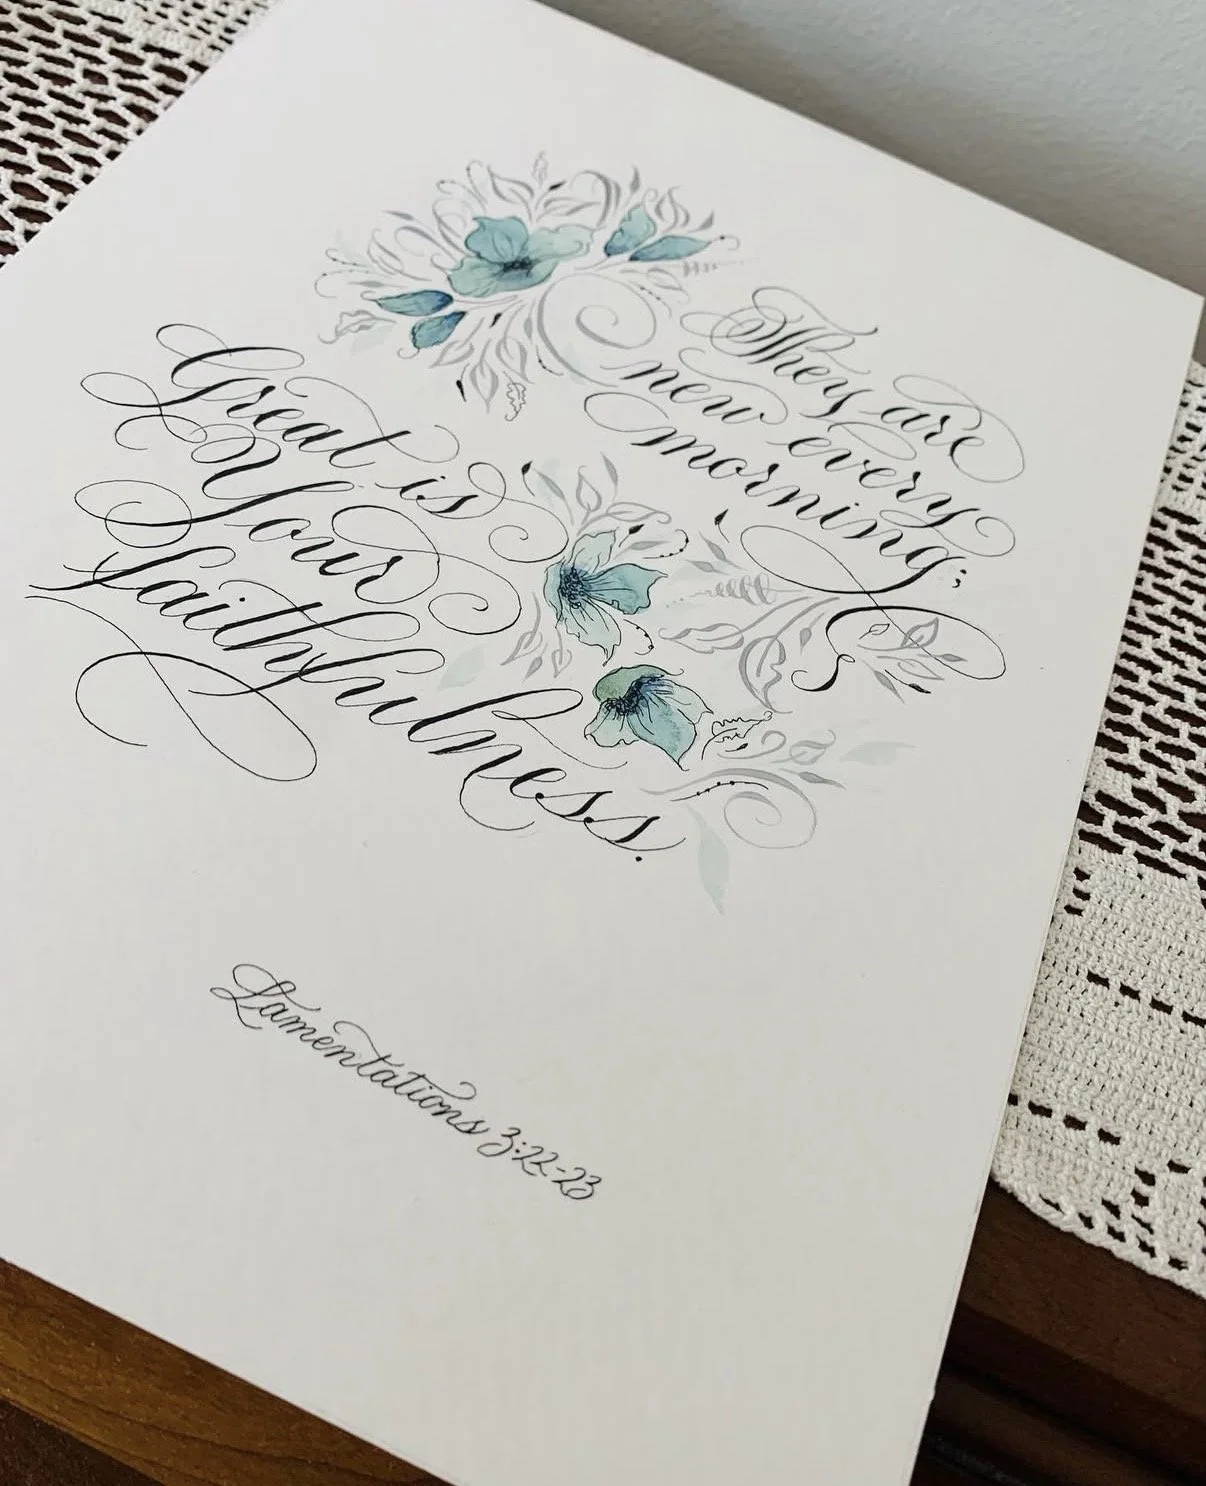 They are
new every
morning;
Great is
Your
faithfulness.
Lamentations 3:22-23